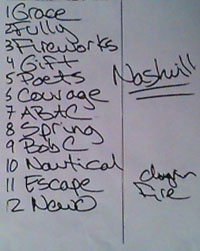 1 Grace
2 Fully
3 Fireworks
4 Gift
5 Poets
6 Courage
7 ABAC
8 Spring
9 Bob C
10 Nautical
11 Escape
12 NewO
Nashill
Fire